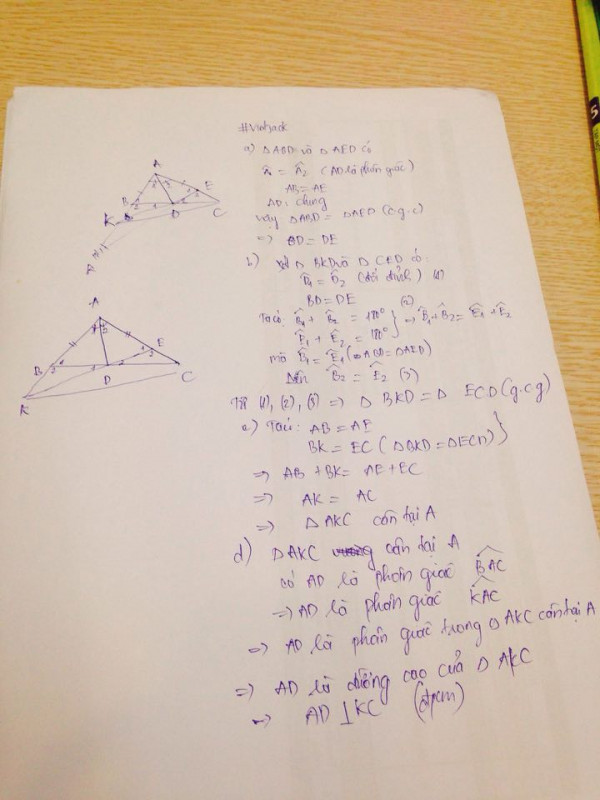 a) ΔABD và ΔAED có
Â1 = Â2 (AD là phân giác)
AB = AE
AD: chung
Vậy ΔABD = ΔAED (c.g.c)
=> BD = DE
b) Xét Δ BKD và Δ CED có:
D̂1 = D̂2 (đối đỉnh) (1)
BD = DE
Ta có: B̂1 + B̂2 = 180°
Ê1 + Ê2 = 180° } (2) => B̂1 + B̂2 = Ê1 + Ê2
mà B̂1 = Ê1 (ΔABD = ΔAED)
B̂2 = Ê2 (3)
Từ (1), (2), (3) => Δ BKD = Δ ECD (g.c.g)
c) Ta có: AB = AE
BK = EC (ΔBKD = ΔECD) }
=> AB + BK = AE + EC
=> AK = AC
=> Δ AKC cân tại A
d) ΔAKC cân tại A
có AD là phân giác B̂AC
=> AD là phân giác K̂AC
=> AD là phân giác trong Δ AKC cân tại A
=> AD là đường cao của Δ AKC
=> AD ⊥ KC (đpcm)
A
B
E
K
D
C
A
B
E
D
C
K
5